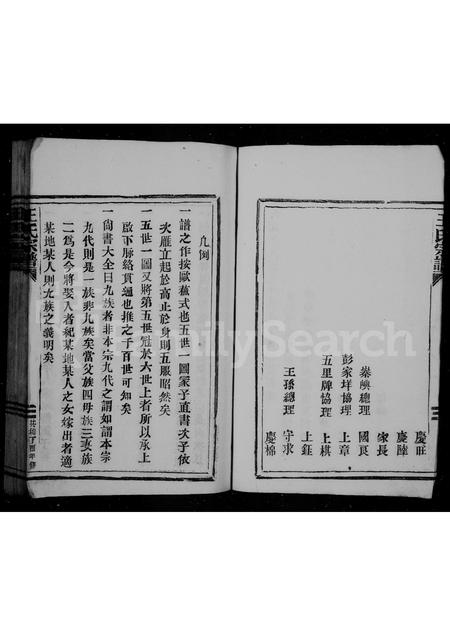 王氏宗譜
慶旺
慶隆
家長
秦嶼總理 國良
彭家垟協理 上章
五里牌協理 上棋
上鈺
王孫總理 守求
慶棉
凡例
一譜之作按歐蘇式也五世一圖冢子直書次子依
次雁立起於高止於身則五服昭然矣
一五世一圖又將第五世冠於六世上者所以承上
啟下脈絡貫通也推之千百世可知矣
一尚書大全曰九族者非本宗九代之謂如謂本宗
九代則是一族非九族矣當父族四母族三妻族
二為是今將娶入者紀某地某人之女嫁出者適
某地某人則九族之義明矣
王氏宗譜
丁酉年修
FamilySearch